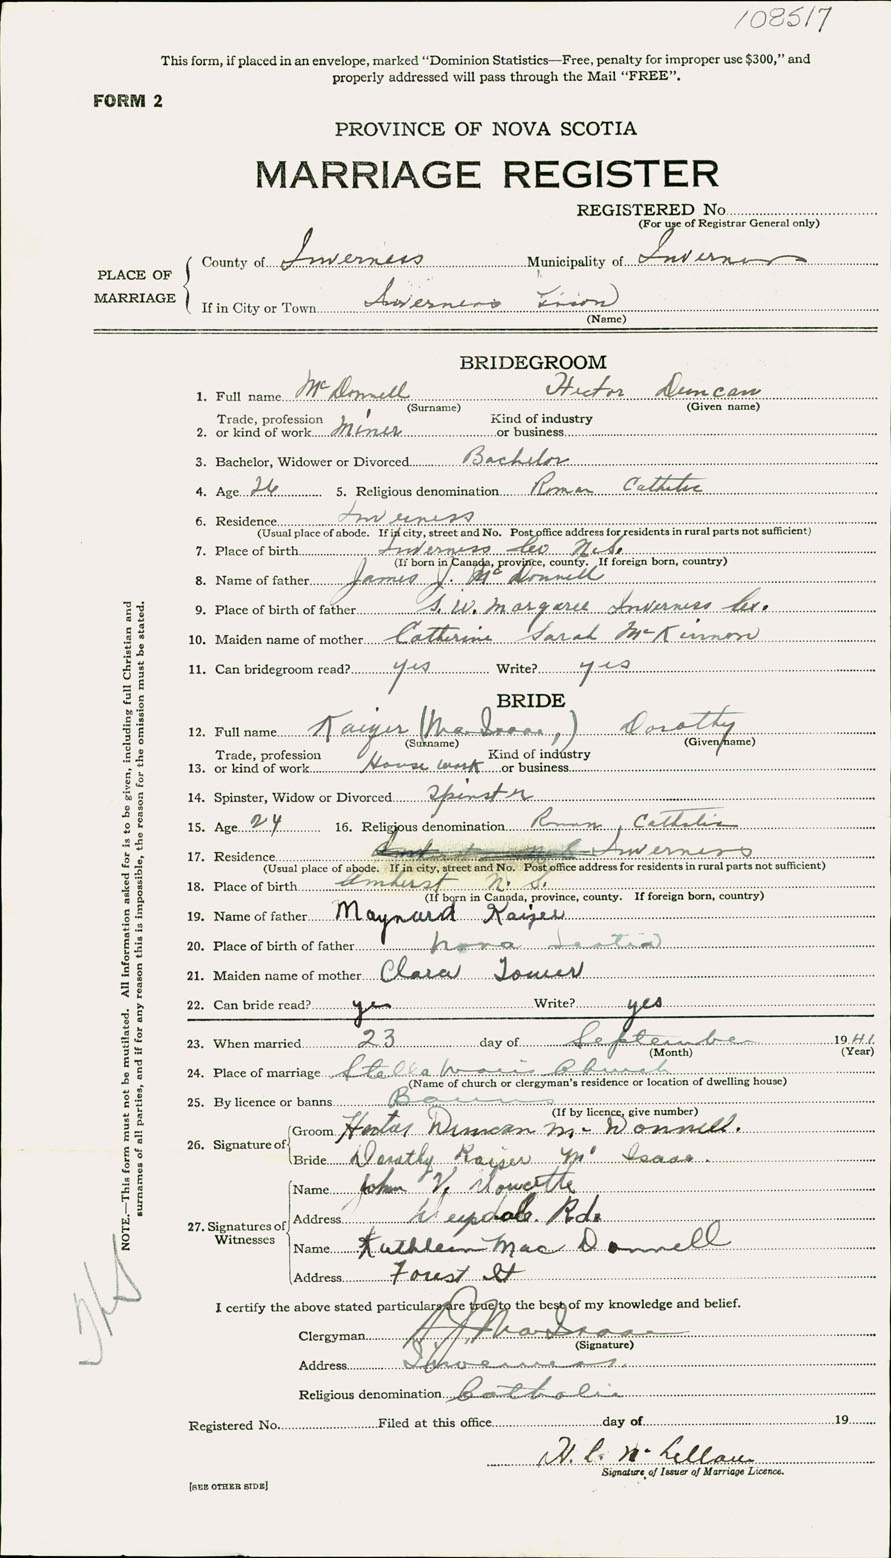 108517
This form, if placed in an envelope, marked “Dominion Statistics—Free, penalty for improper use $300,” and
properly addressed will pass through the Mail “FREE”.
FORM 2
PROVINCE OF NOVA SCOTIA
MARRIAGE REGISTER
REGISTERED No.
(For use of Registrar General only)
PLACE OF MARRIAGE
County of Inverness Municipality of Inverness
If in City or Town Inverness Town
(Name)
BRIDEGROOM
1. Full name McDonnell Hector Duncan
(Surname) (Given name)
Trade, profession Kind of industry
2. or kind of work Miner or business
3. Bachelor, Widower or Divorced Bachelor
4. Age 26 5. Religious denomination Roman Catholic
6. Residence Inverness
(Usual place of abode. If in city, street and No. Post office address for residents in rural parts not sufficient)
7. Place of birth Inverness Co N.S.
(If born in Canada, province, county. If foreign born, country)
8. Name of father James J. McDonnell
9. Place of birth of father S. W. Margaree Inverness Co.
10. Maiden name of mother Catherine Sarah McKinnon
11. Can bridegroom read? yes Write? yes
BRIDE
12. Full name Kaizer (MacIsaac,) Dorothy
(Surname) (Given name)
Trade, profession Kind of industry
13. or kind of work House work or business
14. Spinster, Widow or Divorced Spinster
15. Age 24 16. Religious denomination Roman Catholic
17. Residence Inverness
(Usual place of abode. If in city, street and No. Post office address for residents in rural parts not sufficient)
18. Place of birth Amherst N. S.
(If born in Canada, province, county. If foreign born, country)
19. Name of father Maynard Kaizer
20. Place of birth of father Nova Scotia
21. Maiden name of mother Clara Tower
22. Can bride read? yes Write? yes
23. When married 23 day of September 1941
(Month) (Year)
24. Place of marriage Stella Maris Church
(Name of church or clergyman's residence or location of dwelling house)
25. By licence or banns Banns
(If by licence, give number)
26. Signature of
Groom Hector Duncan McDonnell.
Bride Dorothy Kaiser Mc Isaac.
27. Signatures of Witnesses
Name John V.
Address Rd.
Name Kathleen Mac Donnell
Address Forest St
I certify the above stated particulars are true to the best of my knowledge and belief.
Clergyman MacIsaac
(Signature)
Address Inverness.
Religious denomination Catholic
Registered No. Filed at this office day of 19
H. L. McLellan
Signature of Issuer of Marriage Licence.
[SEE OTHER SIDE]
NOTE.—This form must not be mutilated. All Information asked for is to be given, including full Christian and
surnames of all parties, and if for any reason this is impossible, the reason for the omission must be stated.